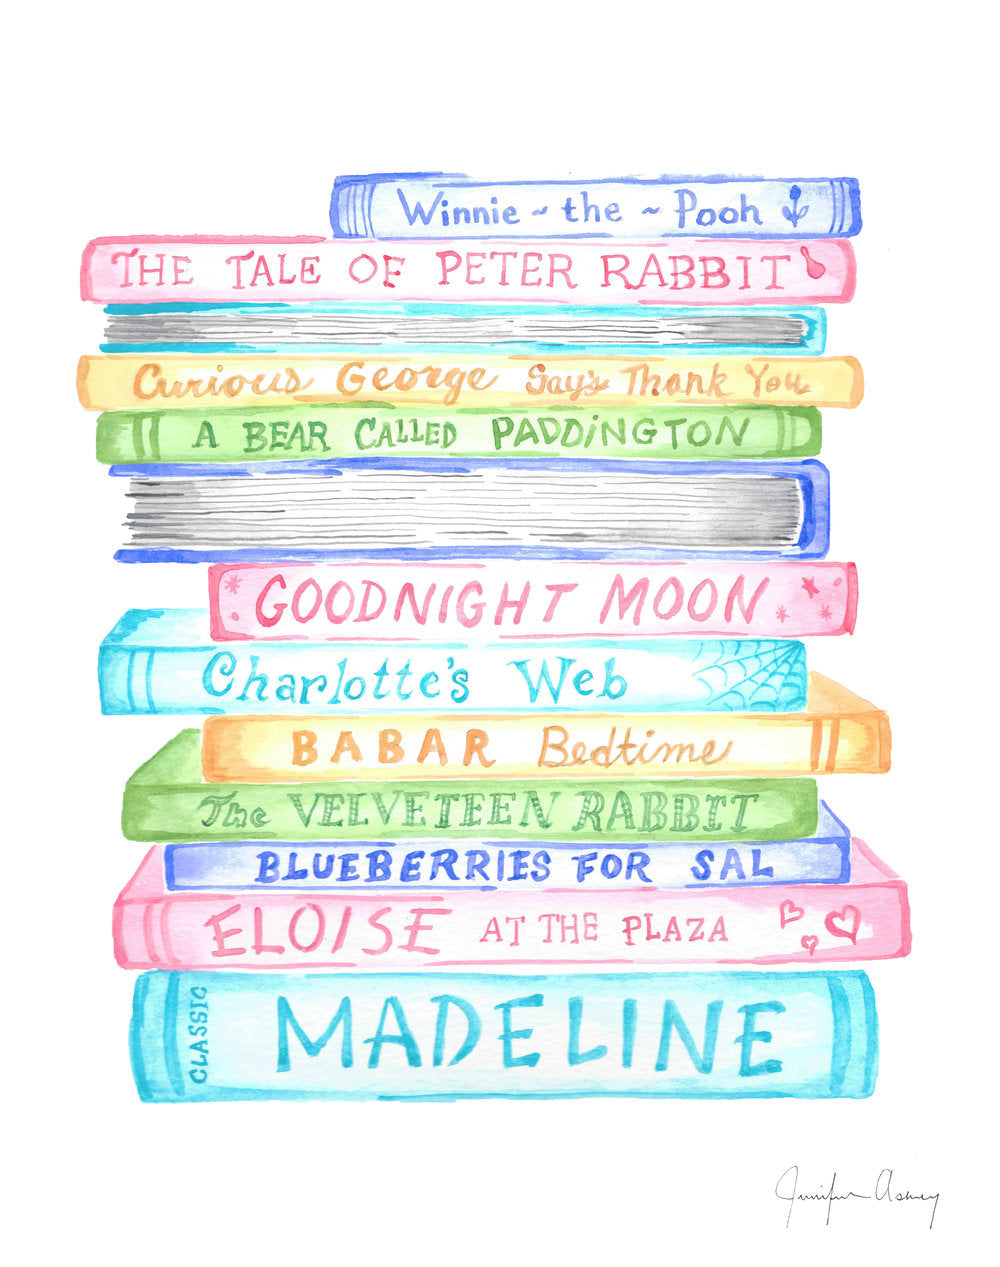 Winnie ~ the ~ Pooh
THE TALE OF PETER RABBIT
Curious George Say's Thank You
A BEAR CALLED PADDiNGTON
GOODNIGHT MOON
Charlotte's Web
BABAR Bedtime
The VELVETEEN RABBIT
BLUEBERRIES FOR SAL
ELOISE AT THE PLAZA
CLASSIC
MADELINE
Jennifer Ashley